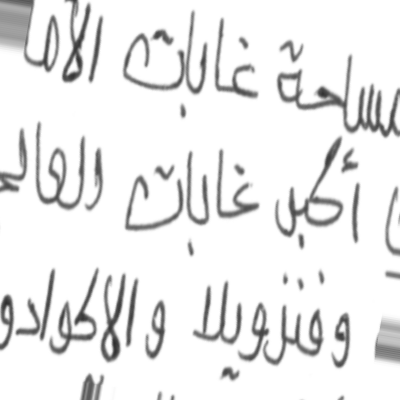 مساحة غابات الأما
أكبر غابات العالم
وفنزويلا والاكوادو